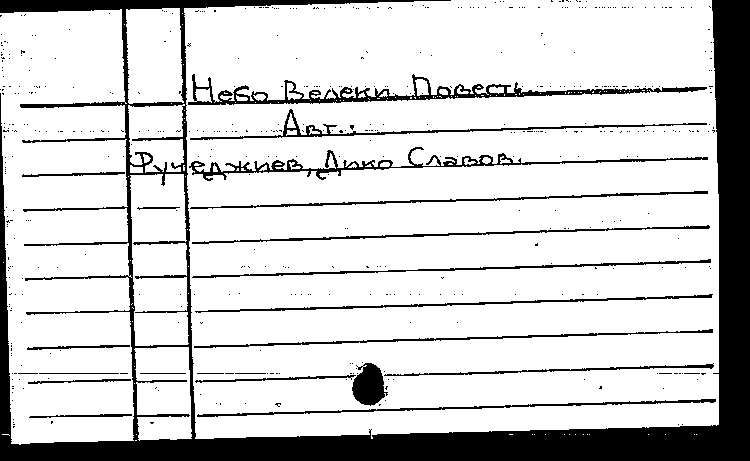 Небо Велеки. Повесть.
Авт.:
Фучеджиев, Дико Славов.